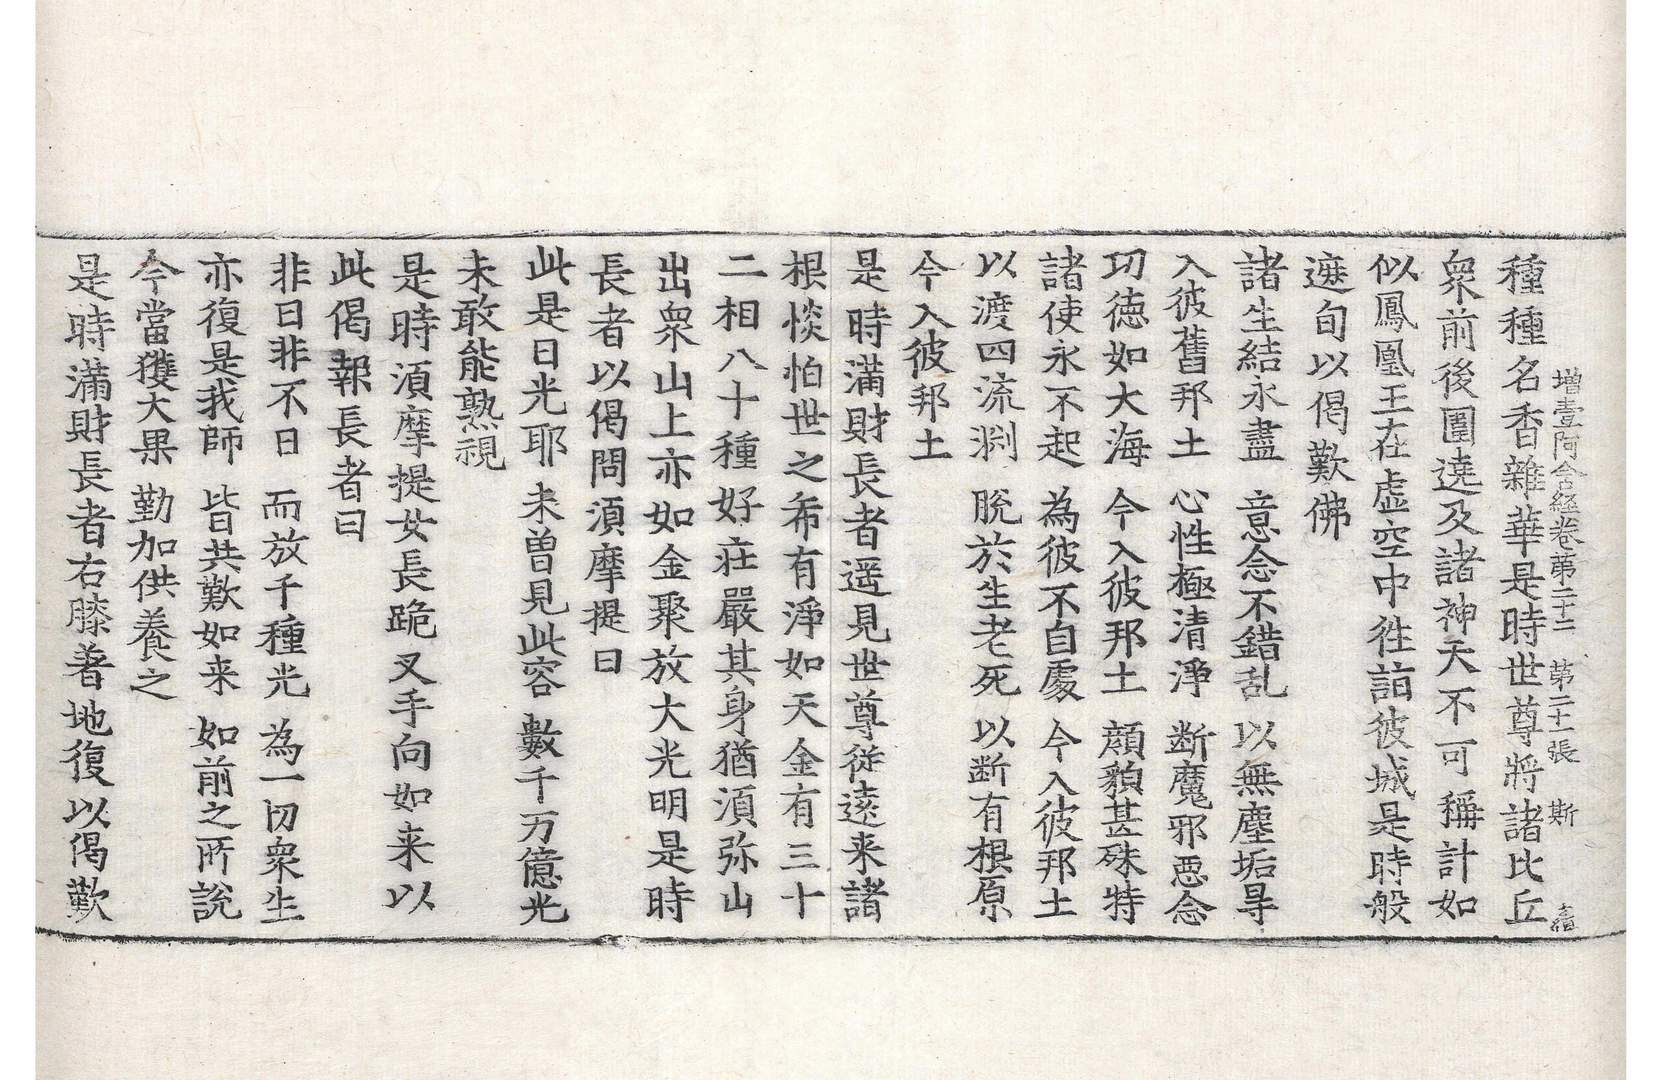 增壹阿含経卷第二十二　第二十一張　斯
種種名香雜華是時世尊將諸比丘
衆前後圍遶及諸神天不可稱計如
似鳳凰王在虛空中徃詣彼城是時般
遮旬以偈歎佛
諸生結永盡　意念不錯乱　以無塵垢㝵
入彼舊邦土　心性極清淨　断魔邪惡念
功德如大海　今入彼邦土　顔貌甚殊特
諸使永不起　為彼不自處　今入彼邦土
以渡四流淵　脫於生老死　以断有根原
今入彼邦土
是時滿財長者遥見世尊從遠来諸
根惔怕世之希有淨如天金有三十
二相八十種好莊嚴其身猶湏弥山
出衆山上亦如金聚放大光明是時
長者以偈問湏摩提曰
此是日光耶　未曽見此容　數千万億光
未敢能熟視
是時湏摩提女長跪叉手向如来以
此偈報長者曰
非日非不日　而放千種光　為一切衆生
亦復是我師　皆共歎如来　如前之所說
今當獲大果　勤加供養之
是時滿財長者右膝著地復以偈歎